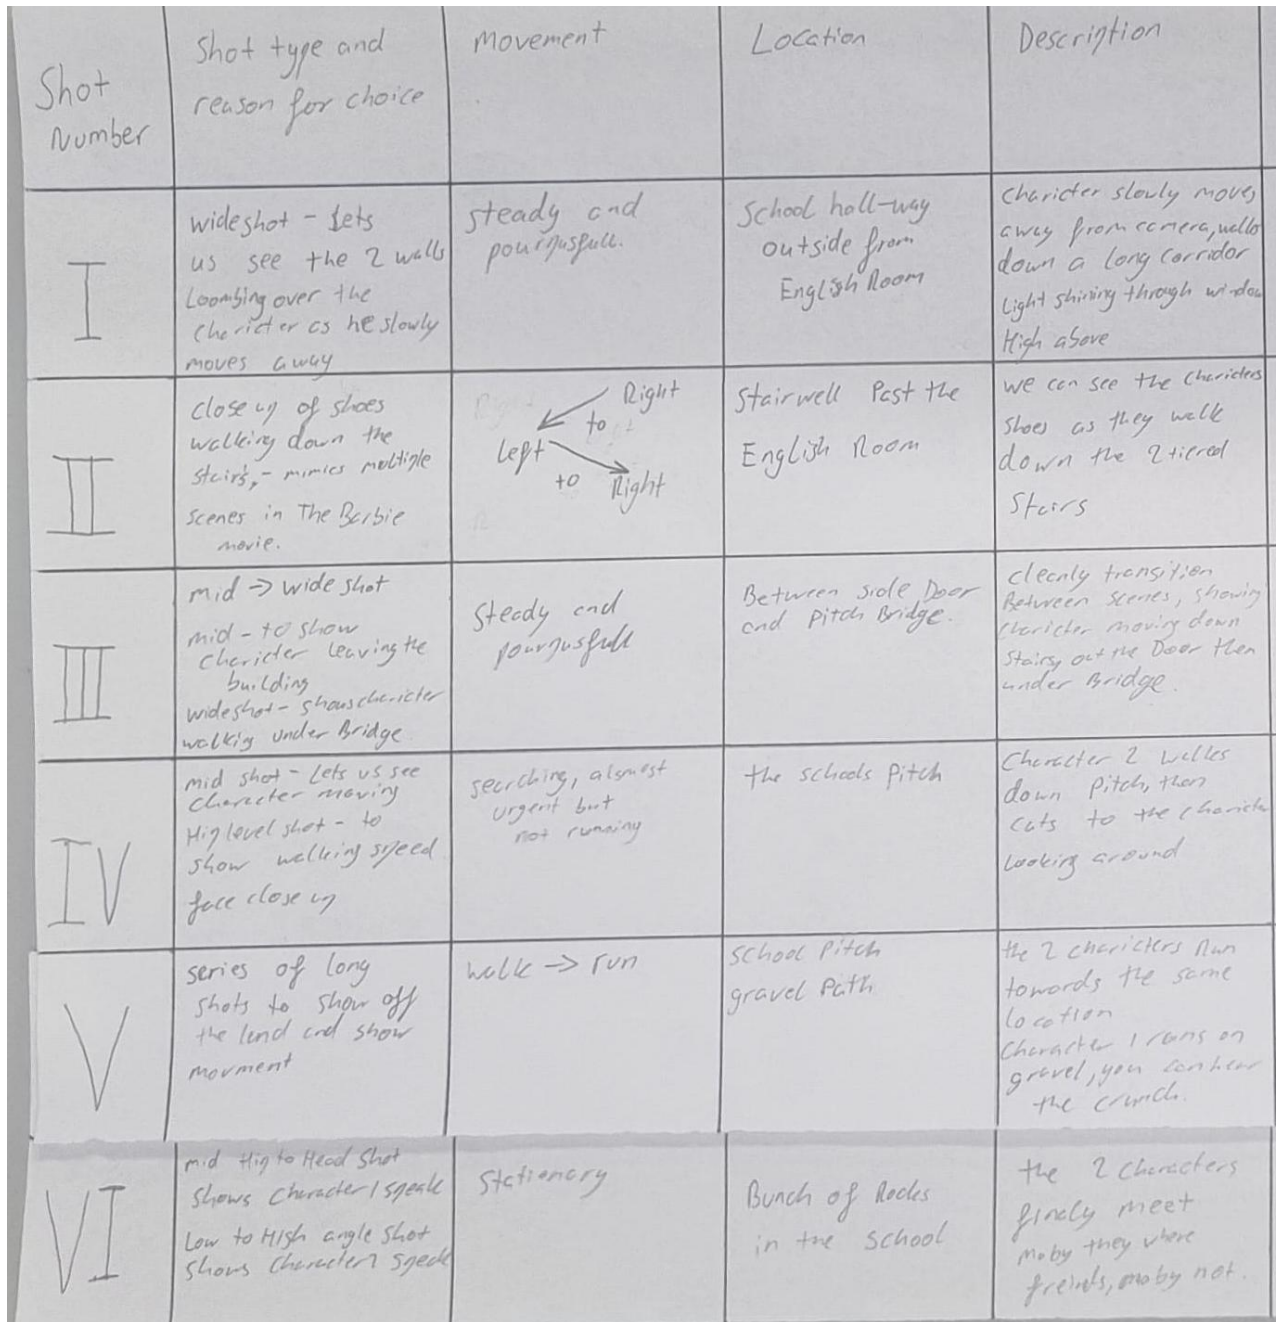 Shot
Number
Shot type and
reason for choice
Movement
Location
Description
I
wideshot - Lets
us see the 2 walls
Loombing over the
Charicter as he slowly
moves away
steady and
pourpusfull.
School hall-way
outside from
English Room
Charicter slowly moves
away from camera, walks
down a long corridor
Light shining through window
High above
II
close up of shoes
walking down the
stairs, - mimics multiple
scenes in The Barbie
movie.
Right
to
Left
to
Right
Stairwell Past the
English Room
we can see the Charicters
shoes as they walk
down the 2 tiered
Stairs
III
mid → wide shot
mid - to show
Charicter leaving the
building
wideshot - shows charicter
walking under Bridge
Steady and
pourpusfull
Between side Door
and Pitch Bridge.
cleanly transition
Between scenes, showing
Charicter moving down
Stairs, out the Door then
under Bridge.
IV
mid shot - Lets us see
Character moving
Hip level shot - to
show walking speed
face close up
searching, alsmost
urgent but
not running
the schools Pitch
Character 2 walks
down Pitch, then
cuts to the charicter
looking around
V
series of long
shots to show off
the land and show
movment
walk → run
school Pitch
gravel Path
the 2 charicters Run
towards the same
location.
Character 1 runs on
gravel, you can hear
the crunch.
VI
mid Hip to Head Shot
Shows Character 1 speak
Low to High angle shot
shows Character 2 speak
Stationary
Bunch of Rocks
in the school
the 2 characters
finaly meet
maby they where
freinds, maby not.